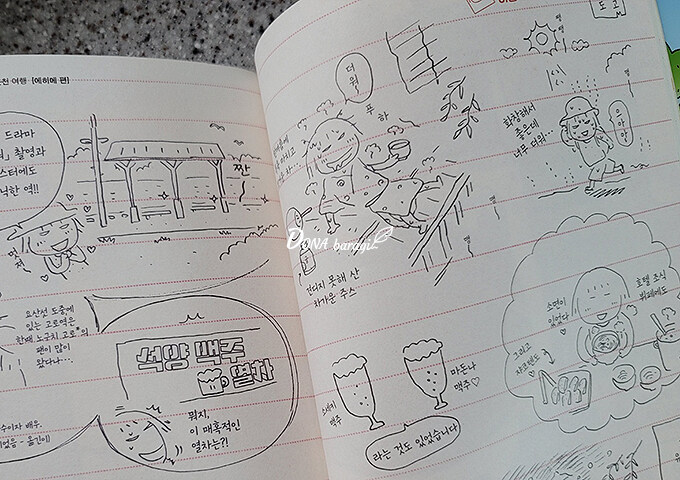 여행 [에히메 편]
드라마
촬영과
스터에도
한 역!!
짠
요산선 도중에
있는 고로역은
한때 노구치 고로*의
팬이 많이
왔다나…
석양 맥주
열차
뭐지,
이 매혹적인
열차는?!
수이자 배우.
더워
푸
하
견디지 못해 산
차가운 주스
도고
쨍
쨍
화창해서
좋은데
너무 더워…
으아아
DONA baragi
소면이
있었다
호텔 조식
뷔페에도
그리고
맥주
마돈나
맥주♡
라는 것도 있었습니다